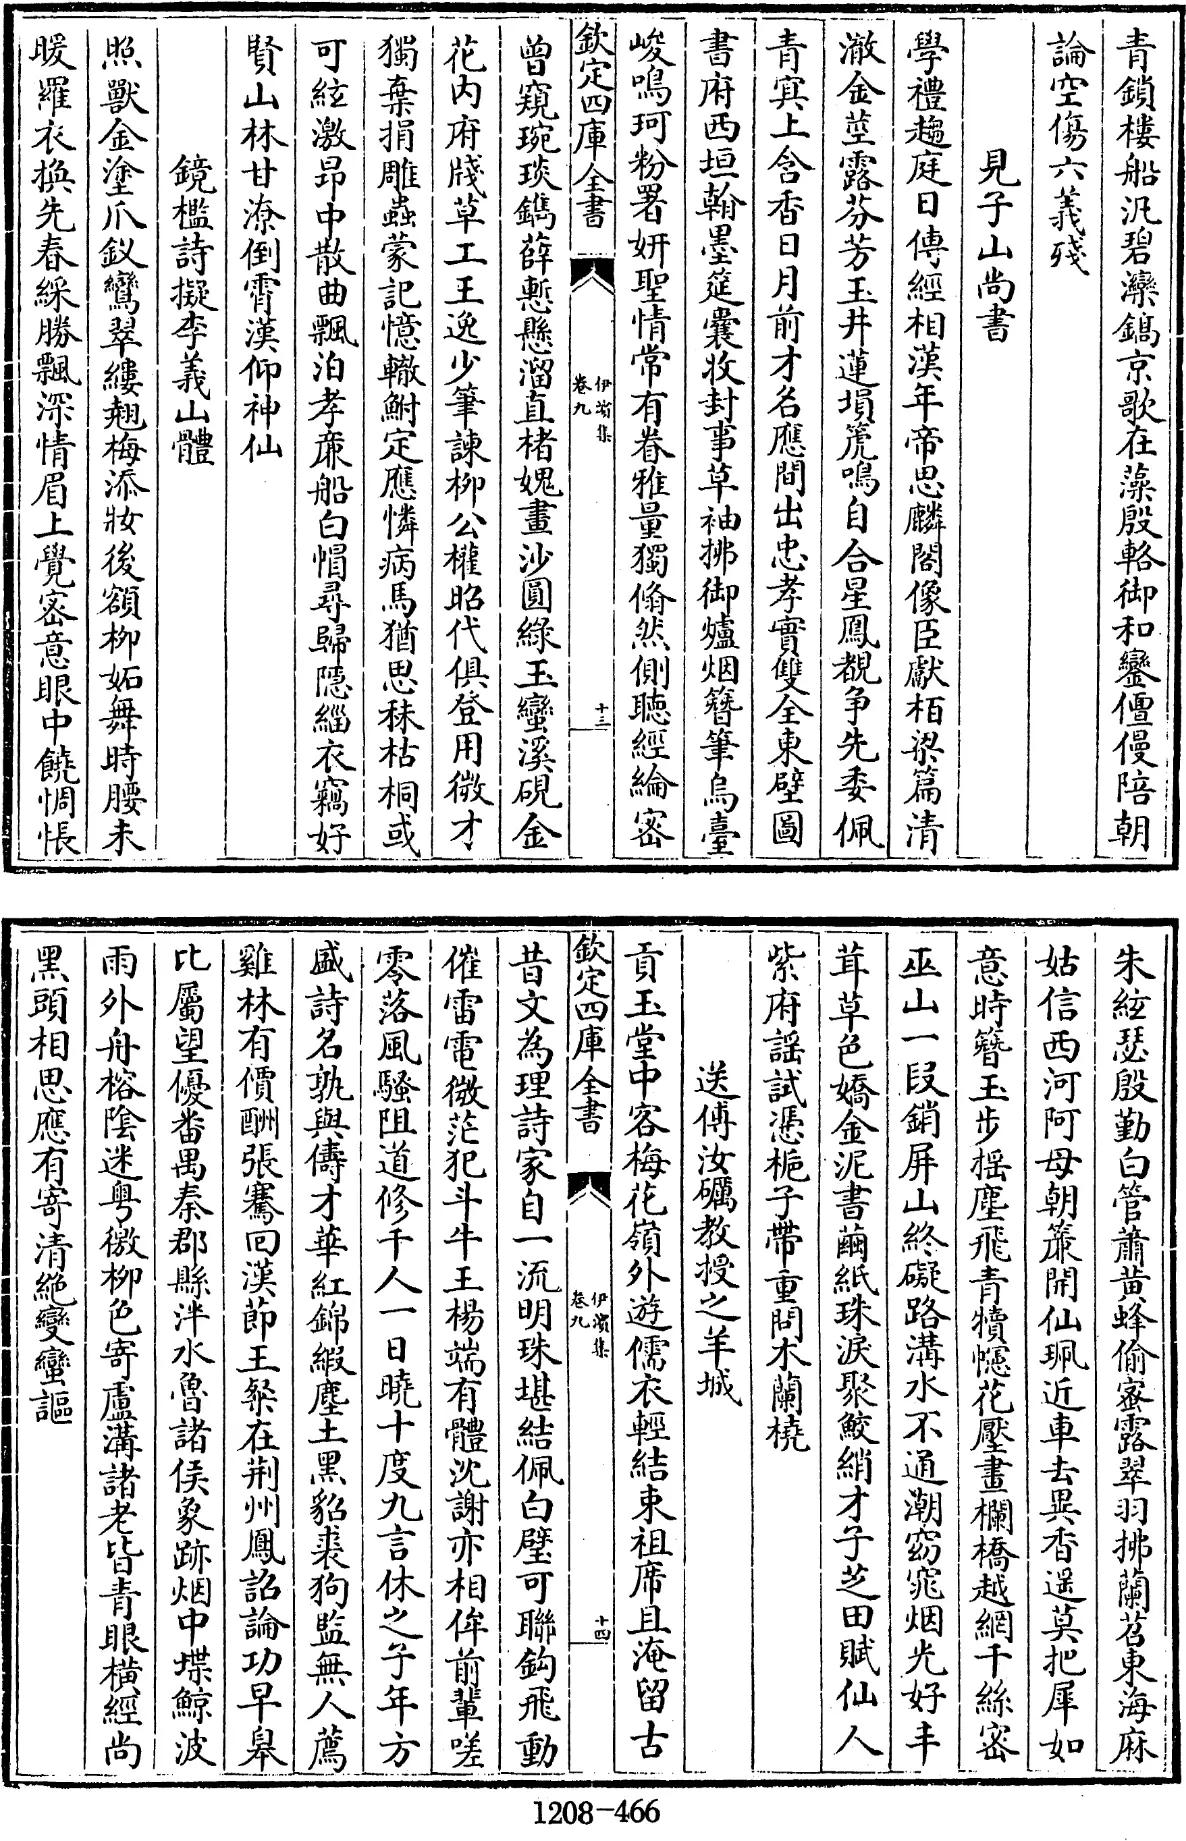 青鎖樓船汎碧灤鎬京歌在藻殷輅御和鑾僭慢陪朝
論空傷六義殘
見子山尚書
學禮趨庭日傳經相漢年帝思麟閣像臣獻栢梁篇清
澈金莖露芬芳玉井蓮塤箎鳴自合星鳳覩争先委佩
青冥上含香日月前才名應間出忠孝實雙全東壁圖
書府西垣翰墨筵囊收封事草袖拂御爐烟簪筆烏臺
峻鳴珂粉署妍聖情常有眷雅量獨翛然側聽經綸密
欽定四庫全書
伊濱集
卷九
十三
曾窺琬琰鐫薛慙懸溜直楮媿畫沙圓綠玉蠻溪硯金
花内府牋草工王逸少筆諫栁公權昭代俱登用微才
獨棄捐雕蟲蒙記憶轍鮒定應憐病馬猶思秣枯桐或
可絃激昂中散曲飄泊孝亷船白㡌尋歸隠緇衣竊好
賢山林甘潦倒霄漢仰神仙
鏡檻詩擬李義山體
照獸金塗爪釵鸞翠縷翹梅添妝後額栁妬舞時腰未
暖羅衣換先春綵勝飄深情眉上覺密意眼中饒惆悵
朱絃瑟殷勤白管蕭黄蜂偷蜜露翠羽拂蘭苕東海麻
姑信西河阿母朝簾開仙珮近車去異香遥莫把犀如
意時簪玉步摇塵飛青犢幰花壓畫欄橋越網千絲密
巫山一段銷屏山終礙路溝水不通潮窈窕烟光好丰
茸草色嬌金泥書繭紙珠淚聚鮫綃才子芝田賦仙人
紫府謡試憑梔子帶重問木蘭橈
送傅汝礪教授之羊城
貢玉堂中客梅花嶺外遊儒衣輕結束祖席且淹留古
欽定四庫全書
伊濱集
卷九
十四
昔文為理詩家自一流明珠堪結佩白璧可聯鈎飛動
催雷電微茫犯斗牛王楊端有體沈謝亦相侔前輩嗟
零落風騷阻道修千人一日曉十度九言休之子年方
盛詩名孰與儔才華紅錦緞塵土黑貂裘狗監無人薦
雞林有價酬張騫回漢節王粲在荆州鳳詔論功早皋
比屬望優番禺秦郡縣泮水魯諸侯象跡烟中堞鯨波
雨外舟榕隂迷粤徼栁色寄盧溝諸老皆青眼橫經尚
黑頭相思應有寄清絶變蠻謳
1208-466